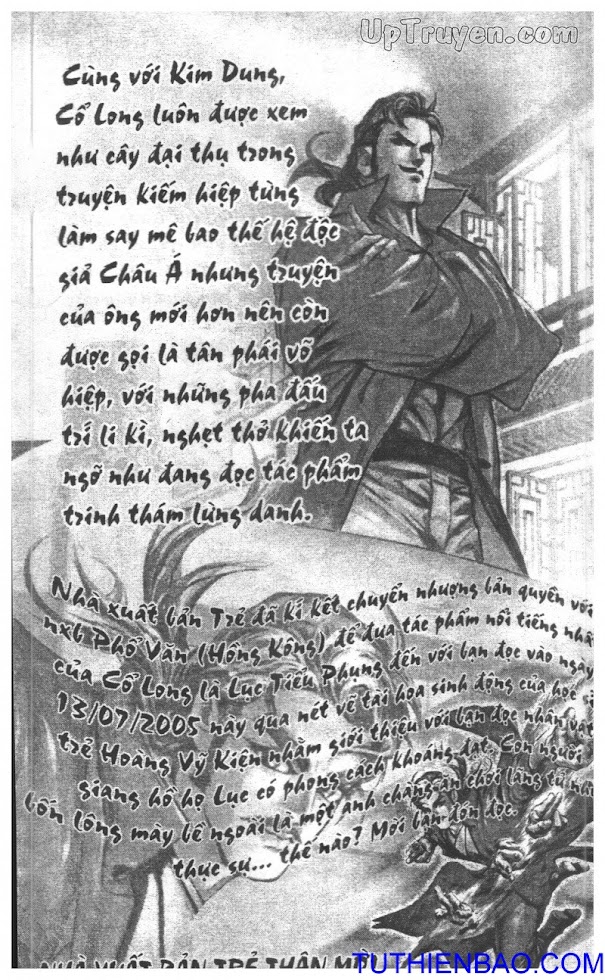 UpTruyen.com
Cùng với Kim Dung,
Cổ Long luôn được xem
như cây đại thụ trong
truyện kiếm hiệp từng
làm say mê bao thế hệ độc
giả Châu Á nhưng truyện
của ông mới hơn nên còn
được gọi là tân phái võ
hiệp, với những pha đấu
trí li kì, nghẹt thở khiến ta
ngỡ như đang đọc tác phẩm
trinh thám lừng danh.
Nhà xuất bản Trẻ đã kí kết chuyển nhượng bản quyền với
nxb Phổ Văn (Hồng Kông) để đưa tác phẩm nổi tiếng
của Cổ Long là Lục Tiểu Phụng đến với bạn đọc vào ngày
13/07/2005 này qua nét vẽ tài hoa sinh động của họa
trẻ Hoàng Vỹ Kiện nhằm giới thiệu với bạn đọc nhân vật
giang hồ họ Lục có phong cách khoáng đạt. Con người
bốn lông mày bề ngoài là một anh chàng ăn chơi lãng tử
thực sự... thế nào? Mời bạn đón đọc.
NHÀ XUẤT BẢN TRẺ THÂN
TUTHIENBAO.COM